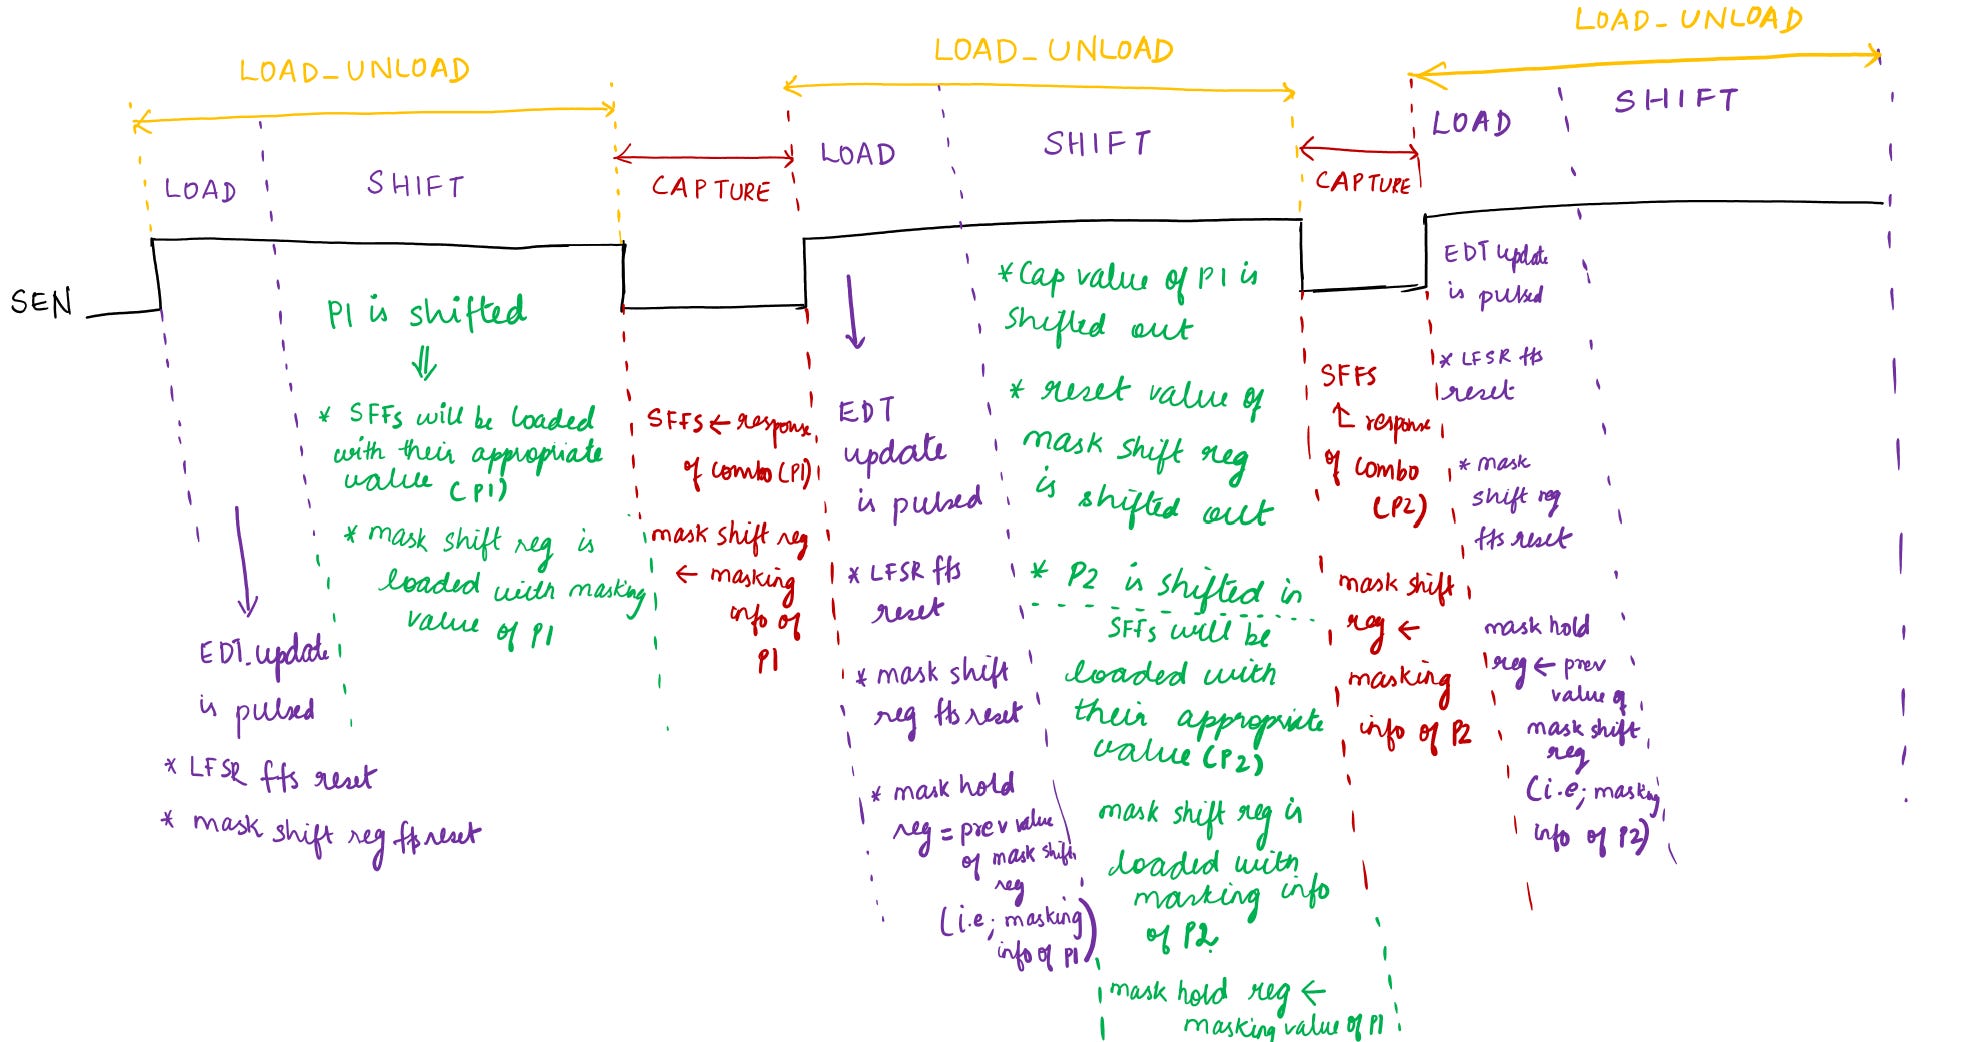 LOAD_UNLOAD
LOAD_UNLOAD
LOAD_UNLOAD
LOAD
SHIFT
CAPTURE
LOAD
SHIFT
CAPTURE
LOAD
SHIFT
SEN
EDT_update
is pulsed
* LFSR ffs reset
* mask shift reg ffs reset
P1 is shifted
* SFFs will be loaded
with their appropriate
value (P1)
* mask shift reg is
loaded with masking
value of P1
SFFS ← response
of combo (P1)
mask shift reg
← masking
info of
P1
EDT
update
is pulsed
* LFSR ffs
reset
* mask shift
reg ffs reset
* mask hold
reg = prev value
of mask shift
reg
(i.e; masking
info of P1)
* Cap value of P1 is
shifted out
* reset value of
mask shift reg
is shifted out
* P2 is shifted in
SFFs will be
loaded with
their appropriate
value (P2)
mask shift reg is
loaded with
masking info
of P2
mask hold reg ←
masking value of P1
SFFS
← response
of combo
(P2)
mask shift
reg ←
masking
info of P2
EDT update
is pulsed
* LFSR ffs
reset
* mask
shift reg
ffs reset
mask hold
reg ← prev
value of
mask shift
reg
(i.e; masking
info of P2)